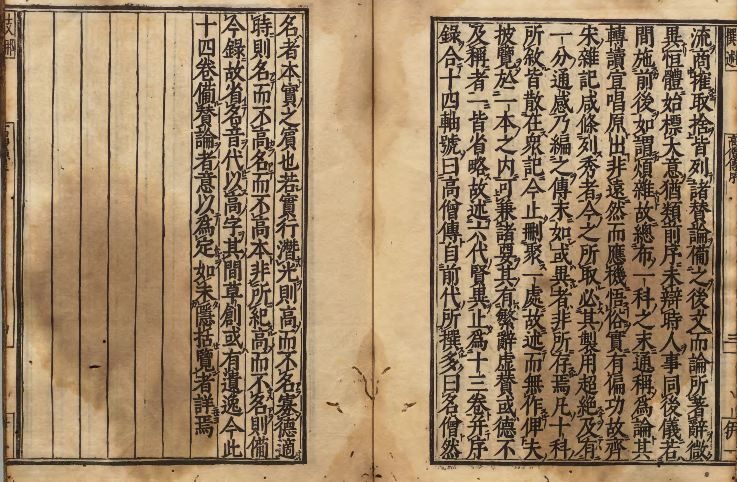 流商搉取捨皆列諸賛論備之後文而論所著辭微
異恒體始標大意猶類前序末辯時人事同後儀若
間施前後如謂煩雜故總布一科之末通稱爲論其
轉讀宣唱原出非遠然而應機悟俗實有偏功故齊
宋雜記咸條列秀者今之所取必其製用超絶及有
一分通感乃編之傳末如或異者非所存焉凡十科
所敘皆散在衆記今止刪聚一處故述而無作俾夫
披覽於一本之内可兼諸要其有繁辭虚賛或德不
及稱者一皆省略故述六代賢異止爲十三卷并序
錄合十四軸號曰高僧傳自前代所撰多曰名僧然
名者本實之賓也若實行潛光則高而不名寡德適
時則名而不高名而不高本非所紀高而不名則備
今錄故省名音代以高字其間草創或有遺逸今此
十四卷備賛論者意以爲定如未隱括覽者詳焉